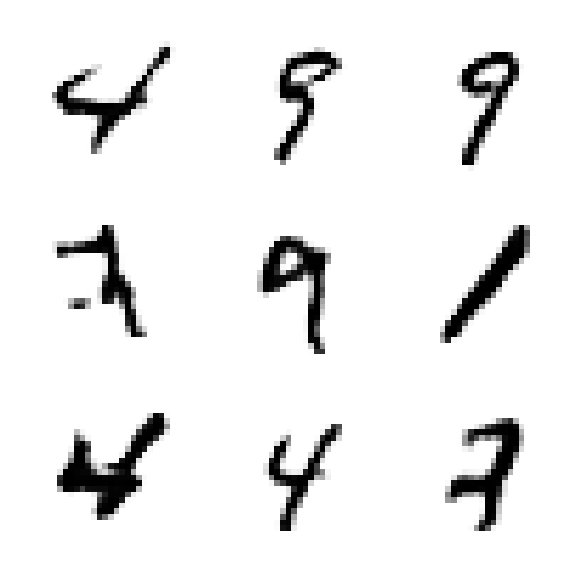 4 9 9
7 9 1
4 4 7